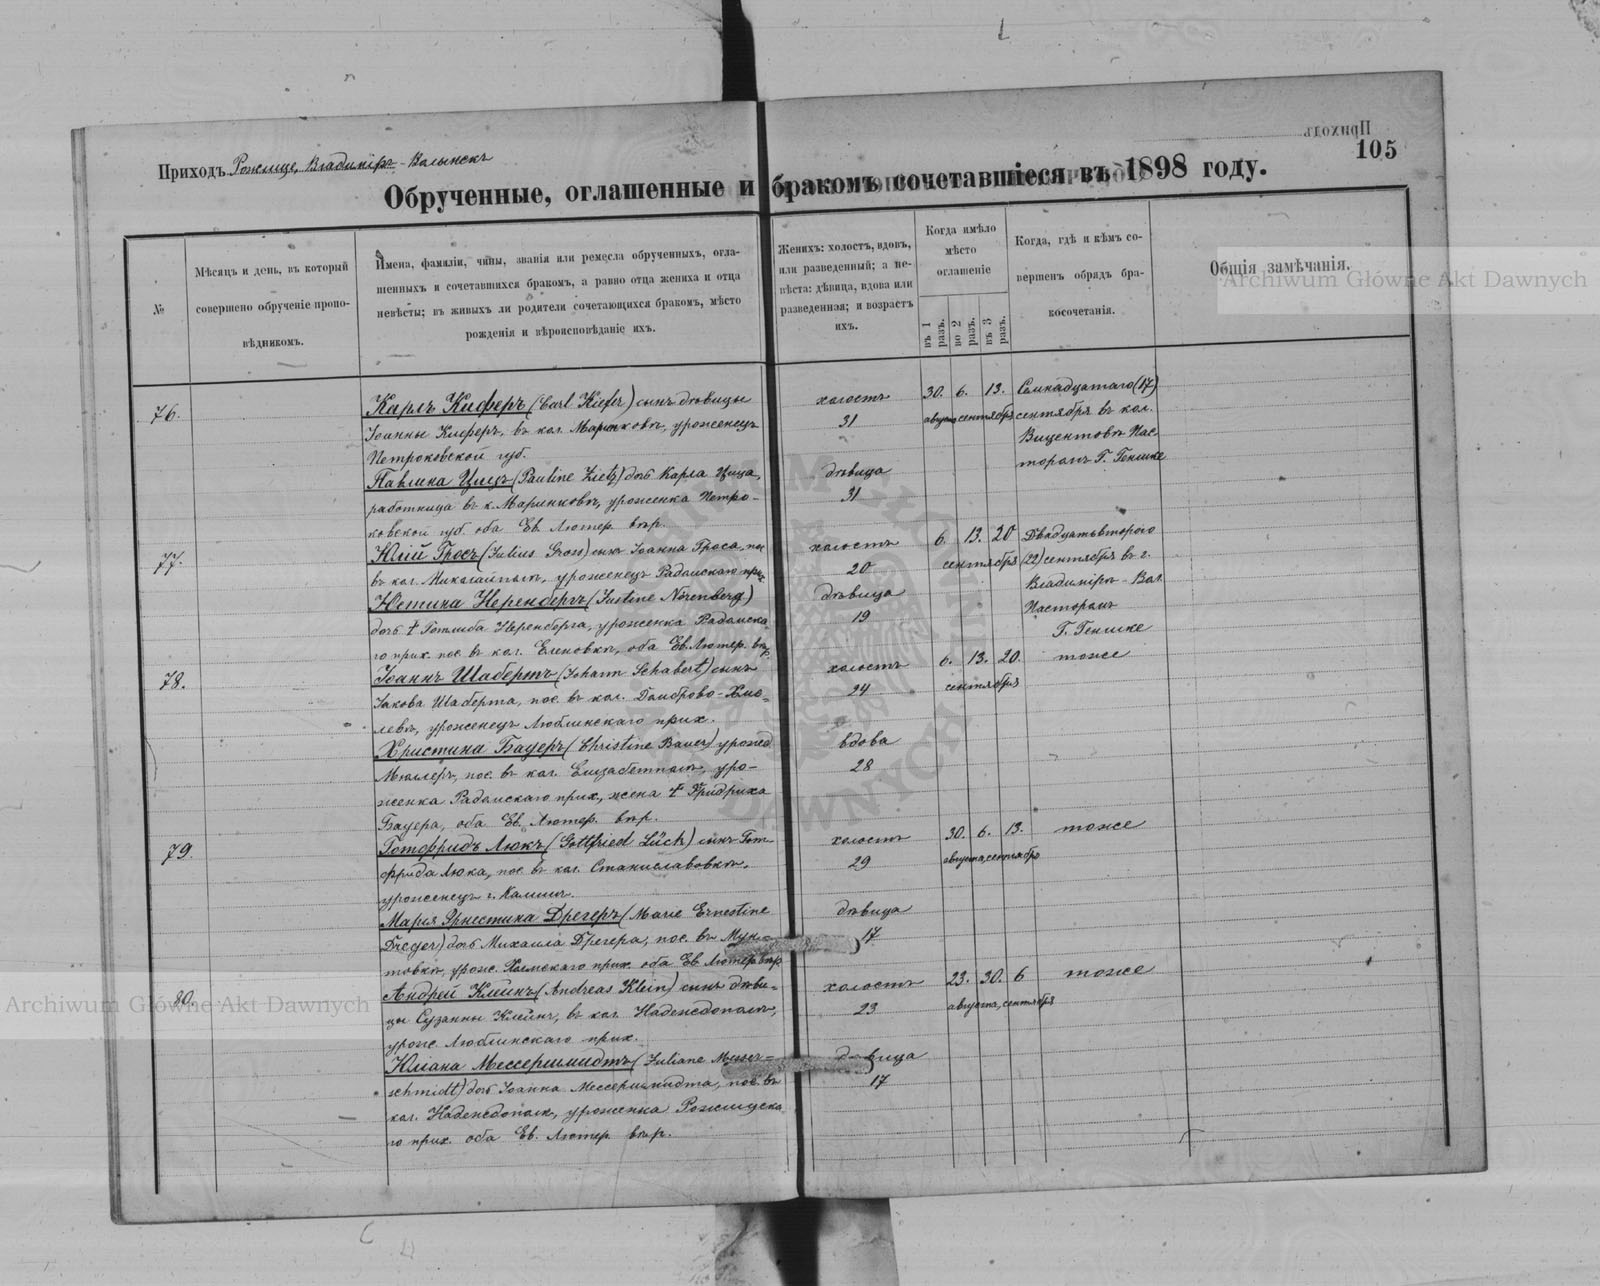 Приходъ
105
Приходъ Рожище, Владимiръ-Волынскъ
Обрученные, оглашенные и бракомъ сочетавшiеся въ 1898 году.
№
Мѣсяцъ и день, въ который
совершено обрученiе пропо-
вѣдникомъ.
Имена, фамилiи, чины, званiя или ремесла обрученныхъ, огла-
шенныхъ и сочетавшихся бракомъ, а равно отца жениха и отца
невѣсты; въ живыхъ ли родители сочетающихся бракомъ, мѣсто
рожденiя и вѣроисповѣданiе ихъ.
Женихъ: холостъ, вдовъ,
или разведенный; а не-
вѣста: дѣвица, вдова или
разведенная; и возрастъ
ихъ.
Когда имѣло
мѣсто
оглашенiе
въ 1 разъ.
во 2 разъ.
въ 3 разъ.
Когда, гдѣ и кѣмъ со-
вершенъ обрядъ бра-
косочетанiя.
Общiя замѣчанiя.
76.
Карлъ Киферъ (Carl Kiefer) сынъ дѣвицы
Iоанны Киферъ, въ кол. Маринковѣ, уроженецъ
Петроковской губ.
Павлина Цицъ (Pauline Zietz) дочь Карла Цица,
работница въ к. Маринковѣ, уроженка Петро-
ковской губ. оба Ев. Лютер. вѣр.
холостъ
31
дѣвица
31
30. 6. 13.
августа сентября
Семнадцатаго (17)
сентября въ кол.
Вицентовѣ Пас-
торомъ Г. Генике
77.
Юлiй Гросъ (Julius Gross) сынъ Iоанна Гроса, пос.
въ кол. Николайполѣ, уроженецъ Радомскаго прих.
Юстина Неренбергъ (Justine Nörenberg)
дочь † Готлиба Неренберга, уроженка Радомска-
го прих. пос. въ кол. Еленовкѣ, оба Ев. Лютер. вѣр.
холостъ
20
дѣвица
19
6. 13. 20
сентября
Двадцатьвторого
(22) сентября въ г.
Владимiръ-Вол.
Пасторомъ
Г. Генике
78.
Iоаннъ Шабертъ (Johann Schabert) сынъ
Iакова Шаберта, пос. въ кол. Домброво-Хмѣ-
левѣ, уроженецъ Люблинскаго прих.
Христина Бауеръ (Christine Bauer) урожд.
Мюллеръ, пос. въ кол. Елизабетполѣ, уро-
женка Радомскаго прих., жена † Фридриха
Бауера, оба Ев. Лютер. вѣр.
холостъ
24
вдова
28
6. 13. 20.
сентября
тоже
79.
Готфридъ Люкъ (Gottfried Lück) сынъ Гот-
фрида Люка, пос. въ кол. Станиславовкѣ,
уроженецъ г. Калиша
Марiя Эрнестина Дрегеръ (Marie Ernestine
Dreger) дочь Михаила Дрегера, пос. въ
товкѣ, урож. Холмскаго прих. оба Ев. Лютер. вѣр.
холостъ
29
дѣвица
17
30. 6. 13.
августа, сентября
тоже
80.
Андрей Клейнъ (Andreas Klein) сынъ дѣви-
цы Сузанны Клейнъ, въ кол. Надеждополѣ,
урож. Люблинскаго прих.
Юлiана Мессершмидтъ (Juliane Messer-
schmidt) дочь Iоанна Мессершмидта, пос. въ
кол. Надеждополѣ, уроженка Рожищска-
го прих. оба Ев. Лютер. вѣр.
холостъ
23
дѣвица
17
23. 30. 6
августа, сентября
тоже
Archiwum Główne Akt Dawnych
Archiwum Główne Akt Dawnych